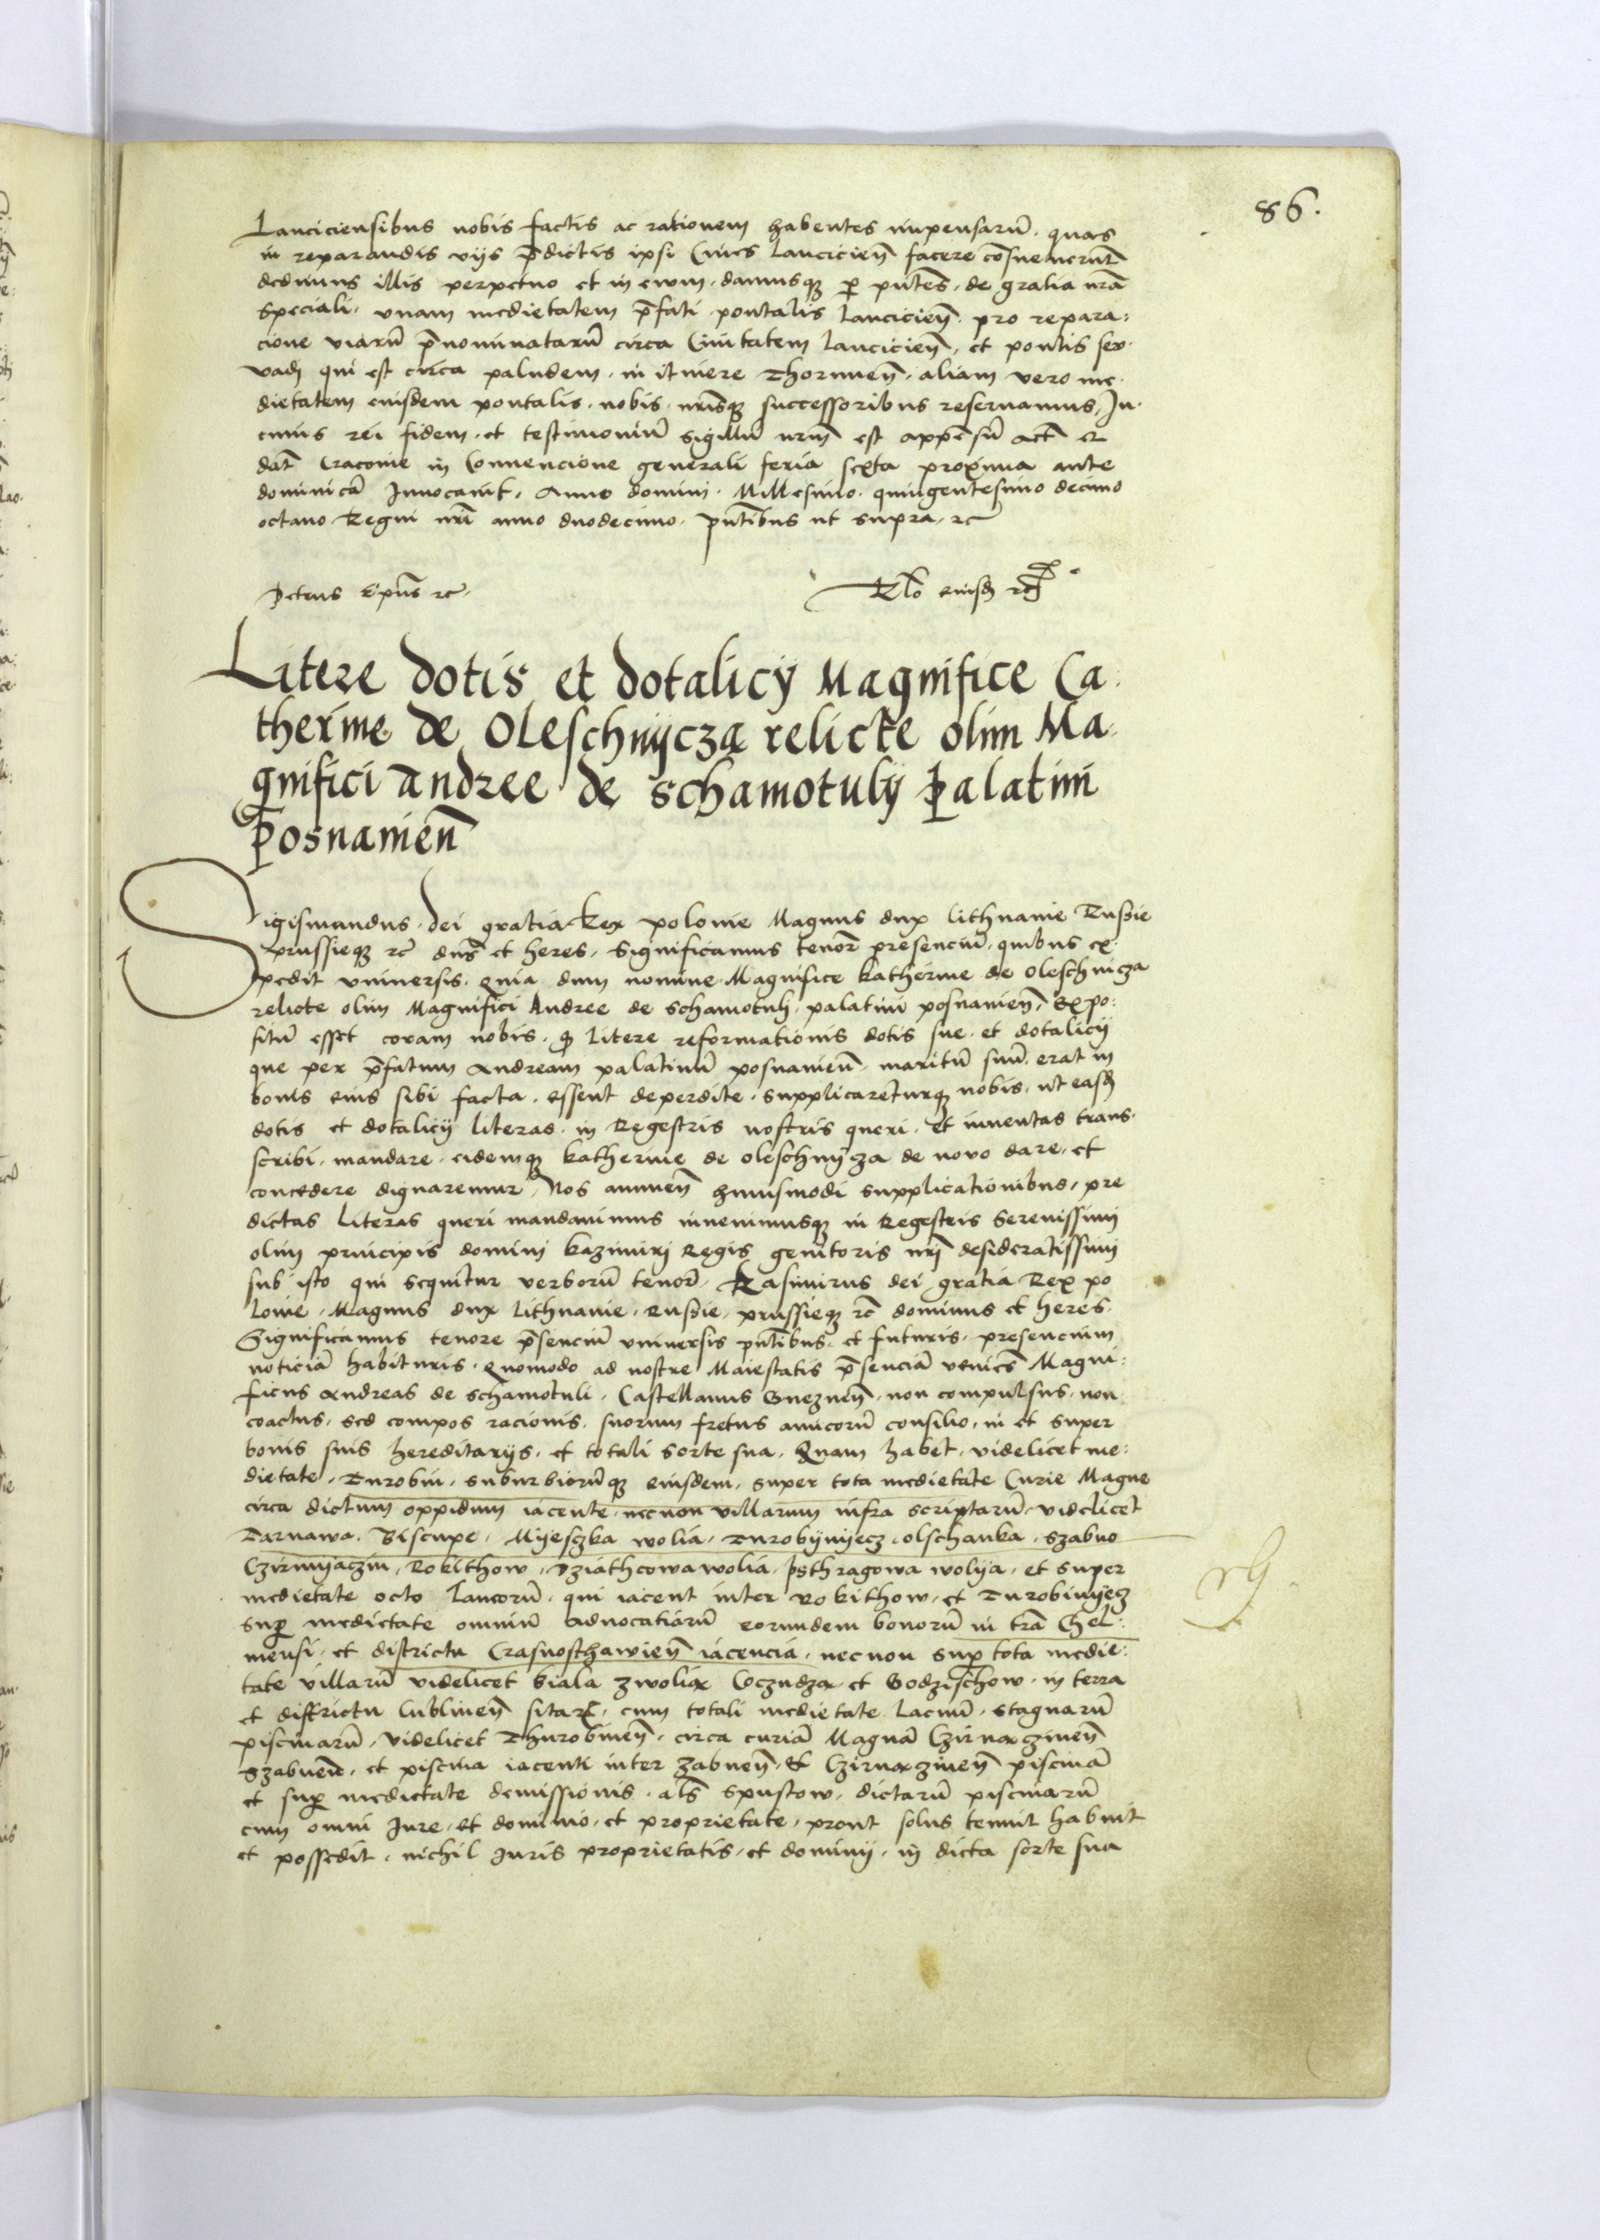 86.
Lanciciensibus nobis factis ac rationem habentes impensarũ. quas
in reparandis vijs p̃dictis ipsi Cives Lancicieñ facere cõsueuerunt
dedimus illis perpetuo et in ewm. damusq; p pñtes. de gratia nrã
speciali. vnam medietatem p̃fati pontalis Lancicieñ. pro repara:
cione viarũ p̃nominatarũ circa Ciuitatem Lancicieñ, et pontis
qui est circa paludem. in itinere Thorunieñ. aliam vero me.
dietatem eiusdem pontalis. nobis. nrisq; successoribus reseruamus, In.
cuius rei fidem. et testimoniũ sigillũ nrm̃ est appẽsũ actũ et
dat̃ Cracouie in Conuencione generali feria sexta proxima ante
dominicã Inuocauit. Anno domini. Millesimo. quingentesimo decimo
octauo Regni nri anno duodecimo. pñtibus ut supra. rc̃
Petrus Epũs rc̃.
Rlo eiusd̃ rc̃
Litere dotis et dotalicij Magnifice Ca.
therine de Oleschnijcza relicte olim Ma.
gnifici andree de schamotulij palatini
posnanieñ
Sigismundus. dei gratia Rex polonie Magnus dux lithuanie Russie
prussieq; rc̃ dñs et heres. Significamus tenorẽ presenciũ. quibus ex.
pedit vniuersis. quia dum nomine Magnifice katherine de oleschnicza
relicte olim Magnifici Andree de schamotuli. palatini posnanieñ, expo:
situ esset coram nobis. q̃ litere reformationis dotis sue. et dotalicij
que per p̃fatum Andream palatinũ posnanieñ. maritũ suũ. erat in
bonis eius sibi facta. essent deperdite. supplicareturq; nobis. ut easd̃
dotis et dotalicij literas. in Regestris nostris queri. et inuentas trans.
scribi. mandare. eidemq; katherine de oleschnijcza de nouo dare. et
concedere dignaremur. Nos annueñ huiusmodi supplicationibus, pre
dictas literas queri mandauimus inuenimusq; in Regestris Serenissimi
olim principis domini kazimiri Regis genitoris nri desideratissimi
sub isto qui sequitur verborũ tenorẽ. Kasimirus dei gratia Rex po
lonie. Magnus dux lithuanie. Russie. prussieq; rc̃ dominus et heres.
Significamus tenore p̃senciũ vniuersis pñtibus. et futuris. presencium
noticiã habituris. quomodo ad nostre Maiestatis p̃senciã venies Magni:
ficus Andreas de schamotuli. Castellanus Gnezneñ. non compulsus. non
coactus. sed compos racionis. suorum fretus amicorũ consilio. in et super
bonis suis hereditarijs. et totali sorte sua. Quam habet. videlicet me:
dietate. Turobin. suburbiorũq; eiusdem. super tota medietate Curie Magne
circa dictum oppidum iacente. necnon villarum infra scriptarũ. videlicet
Tarnawa. Biscupe. Myesczka wolia. Turobynyecz. olschanka. Szabno
Czirnyaczin. Rokithow. Dziathcowa wolia. psthragowa wolya. et super
medietate octo laneorũ. qui iacent inter Rokithow. et Turobinyecz
sup̃ medietate omniũ aduocatiarũ eorundem bonorũ in trã Chel:
mensi. et districtu Crasnosthawieñ iacencia. necnon sup̃ tota medie:
tate villarũ videlicet biala zwolia et Godzischow. in terra
et districtu lublineñ sitaꝝ. cum totali medietate lacuũ. stagnarũ
piscinarũ. videlicet Thurobineñ. circa curiã Magnã Czirnaczineñ
Szabneñ. et piscina iacenti inter zabneñ et Czirnaczineñ piscinã
et sup̃ medietate demissionis. als̃ spustow. dictarũ piscinarũ
cum omni Jure. et dominio. et proprietate. prout solus tenuit habuit
et possedit. nichil iuris proprietatis. et dominij. in dicta sorte sua